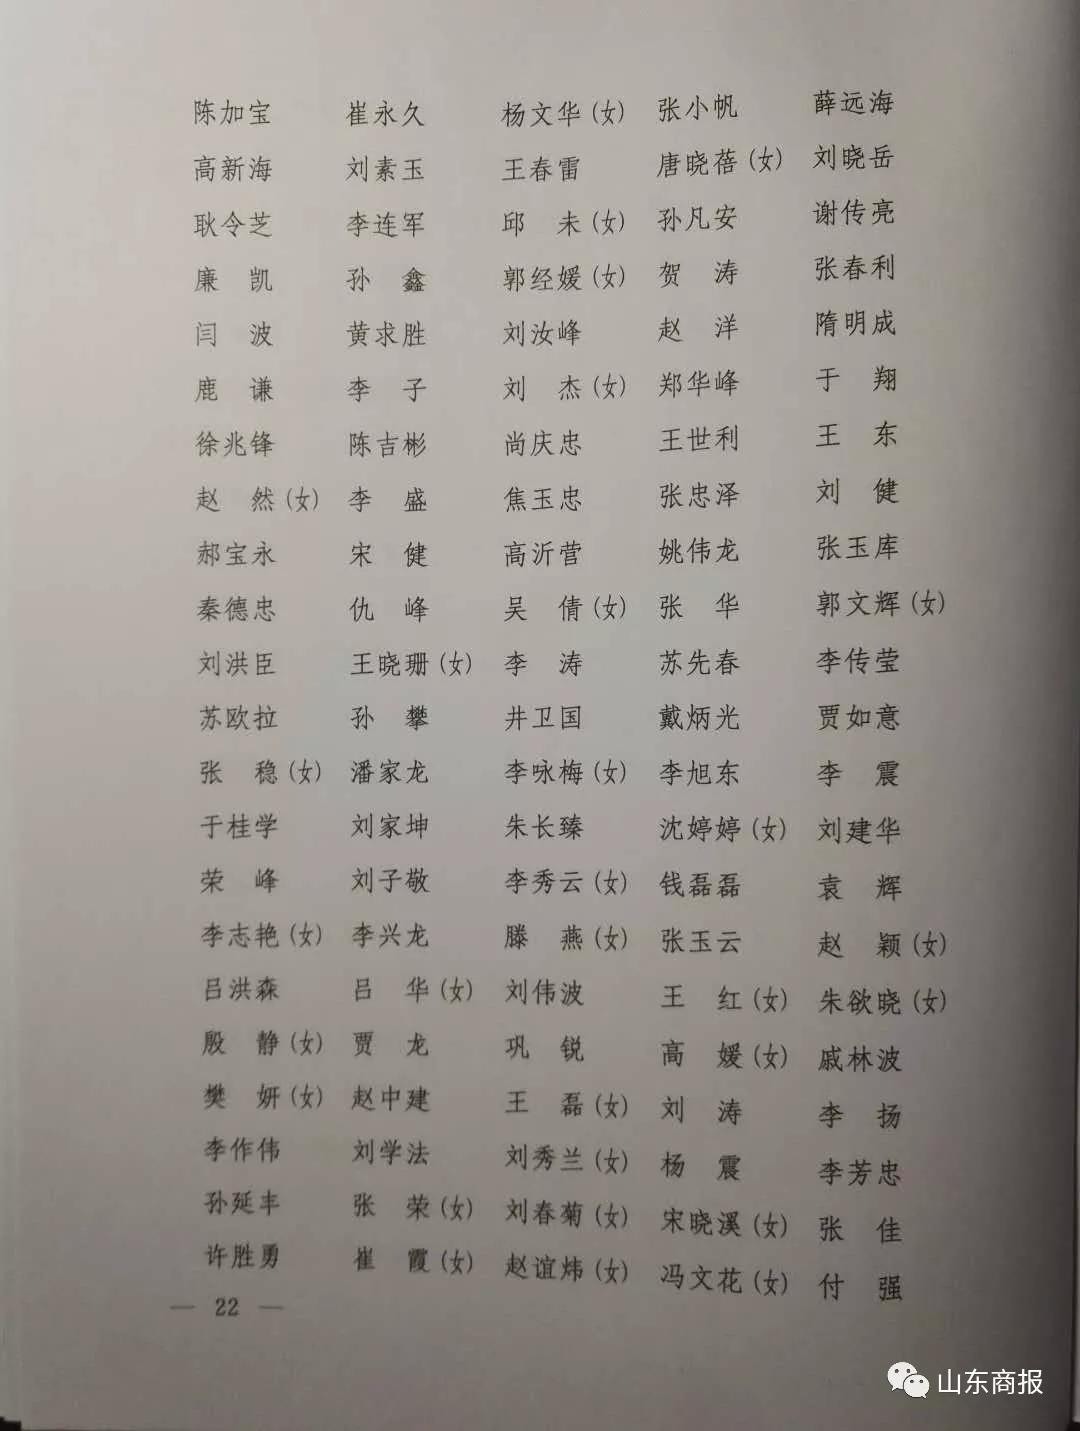 陈加宝 崔永久 杨文华(女) 张小帆 薛远海
高新海 刘素玉 王春雷 唐晓蓓(女) 刘晓岳
耿令芝 李连军 邱 未(女) 孙凡安 谢传亮
廉 凯 孙 鑫 郭经媛(女) 贺 涛 张春利
闫 波 黄求胜 刘汝峰 赵 洋 隋明成
鹿 谦 李 子 刘 杰(女) 郑华峰 于 翔
徐兆锋 陈吉彬 尚庆忠 王世利 王 东
赵 然(女) 李 盛 焦玉忠 张忠泽 刘 健
郝宝永 宋 健 高沂营 姚伟龙 张玉库
秦德忠 仇 峰 吴 倩(女) 张 华 郭文辉(女)
刘洪臣 王晓珊(女) 李 涛 苏先春 李传莹
苏欧拉 孙 攀 井卫国 戴炳光 贾如意
张 稳(女) 潘家龙 李咏梅(女) 李旭东 李 震
于桂学 刘家坤 朱长臻 沈婷婷(女) 刘建华
荣 峰 刘子敬 李秀云(女) 钱磊磊 袁 辉
李志艳(女) 李兴龙 滕 燕(女) 张玉云 赵 颖(女)
吕洪森 吕 华(女) 刘伟波 王 红(女) 朱欲晓(女)
殷 静(女) 贾 龙 巩 锐 高 媛(女) 戚林波
樊 妍(女) 赵中建 王 磊(女) 刘 涛 李 扬
李作伟 刘学法 刘秀兰(女) 杨 震 李芳忠
孙延丰 张 荣(女) 刘春菊(女) 宋晓溪(女) 张 佳
许胜勇 崔 霞(女) 赵谊炜(女) 冯文花(女) 付 强
— 22 —
山东商报